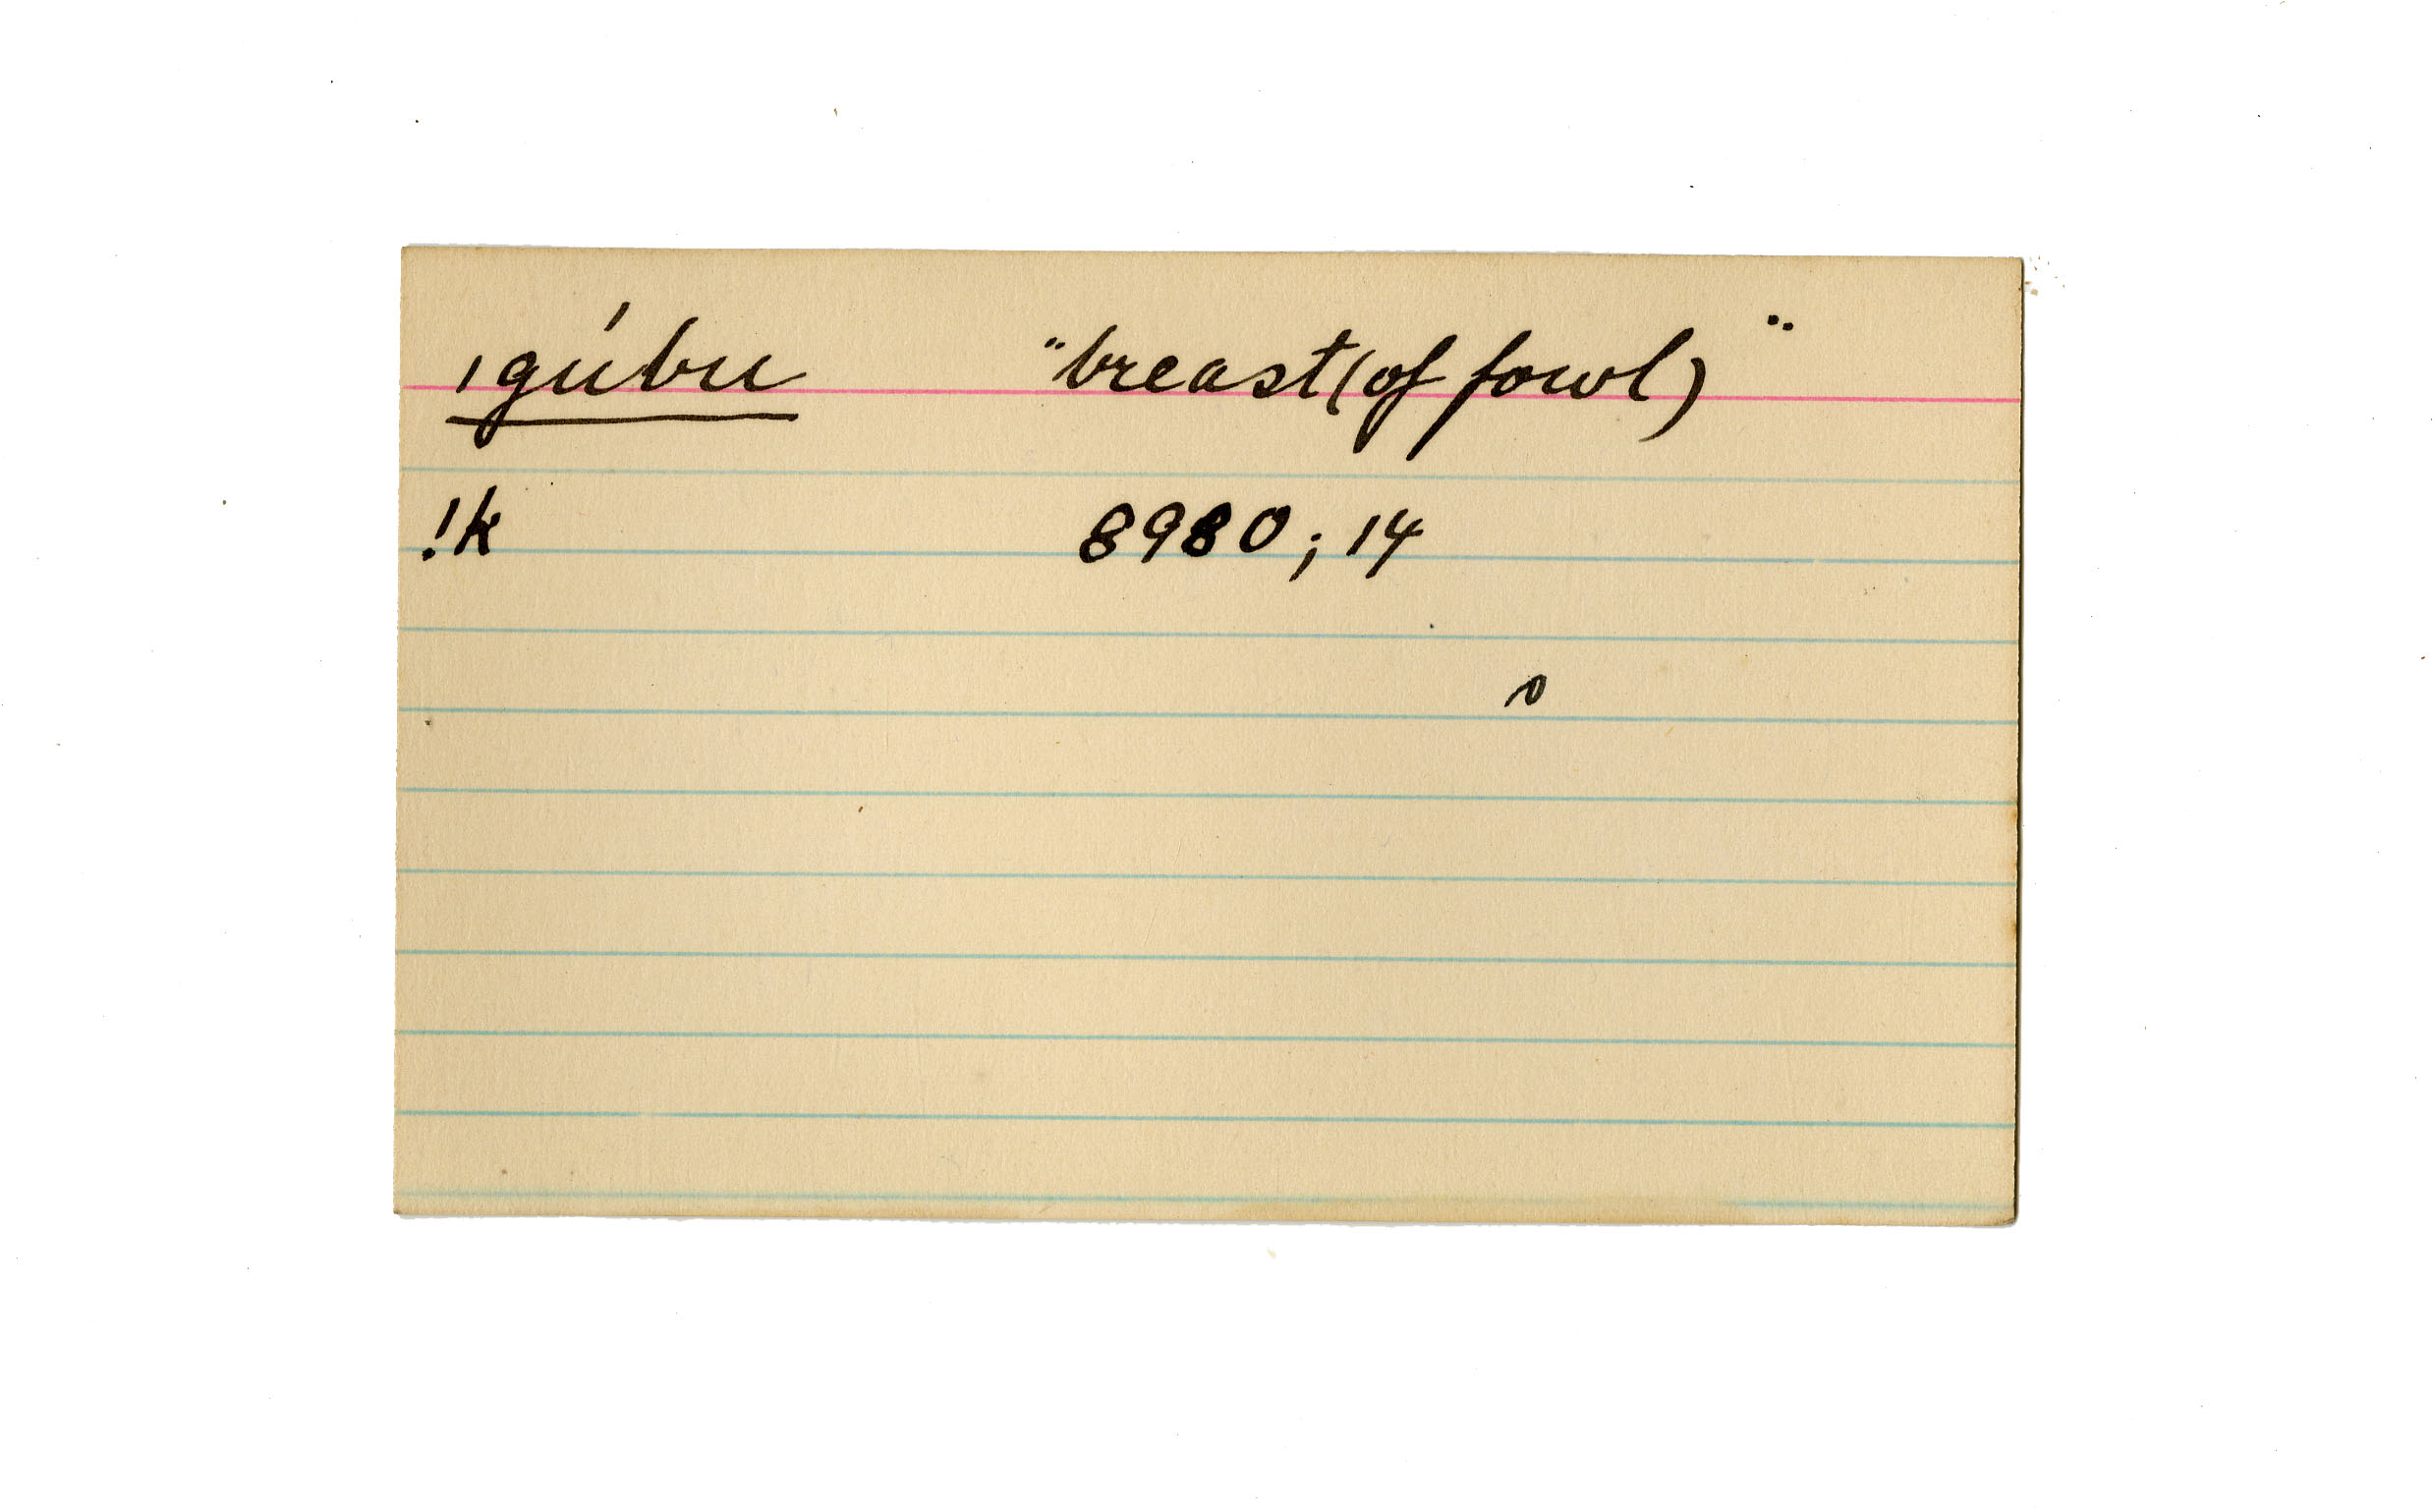 ıgúbu "breast (of fowl)"
!k 8980; 14